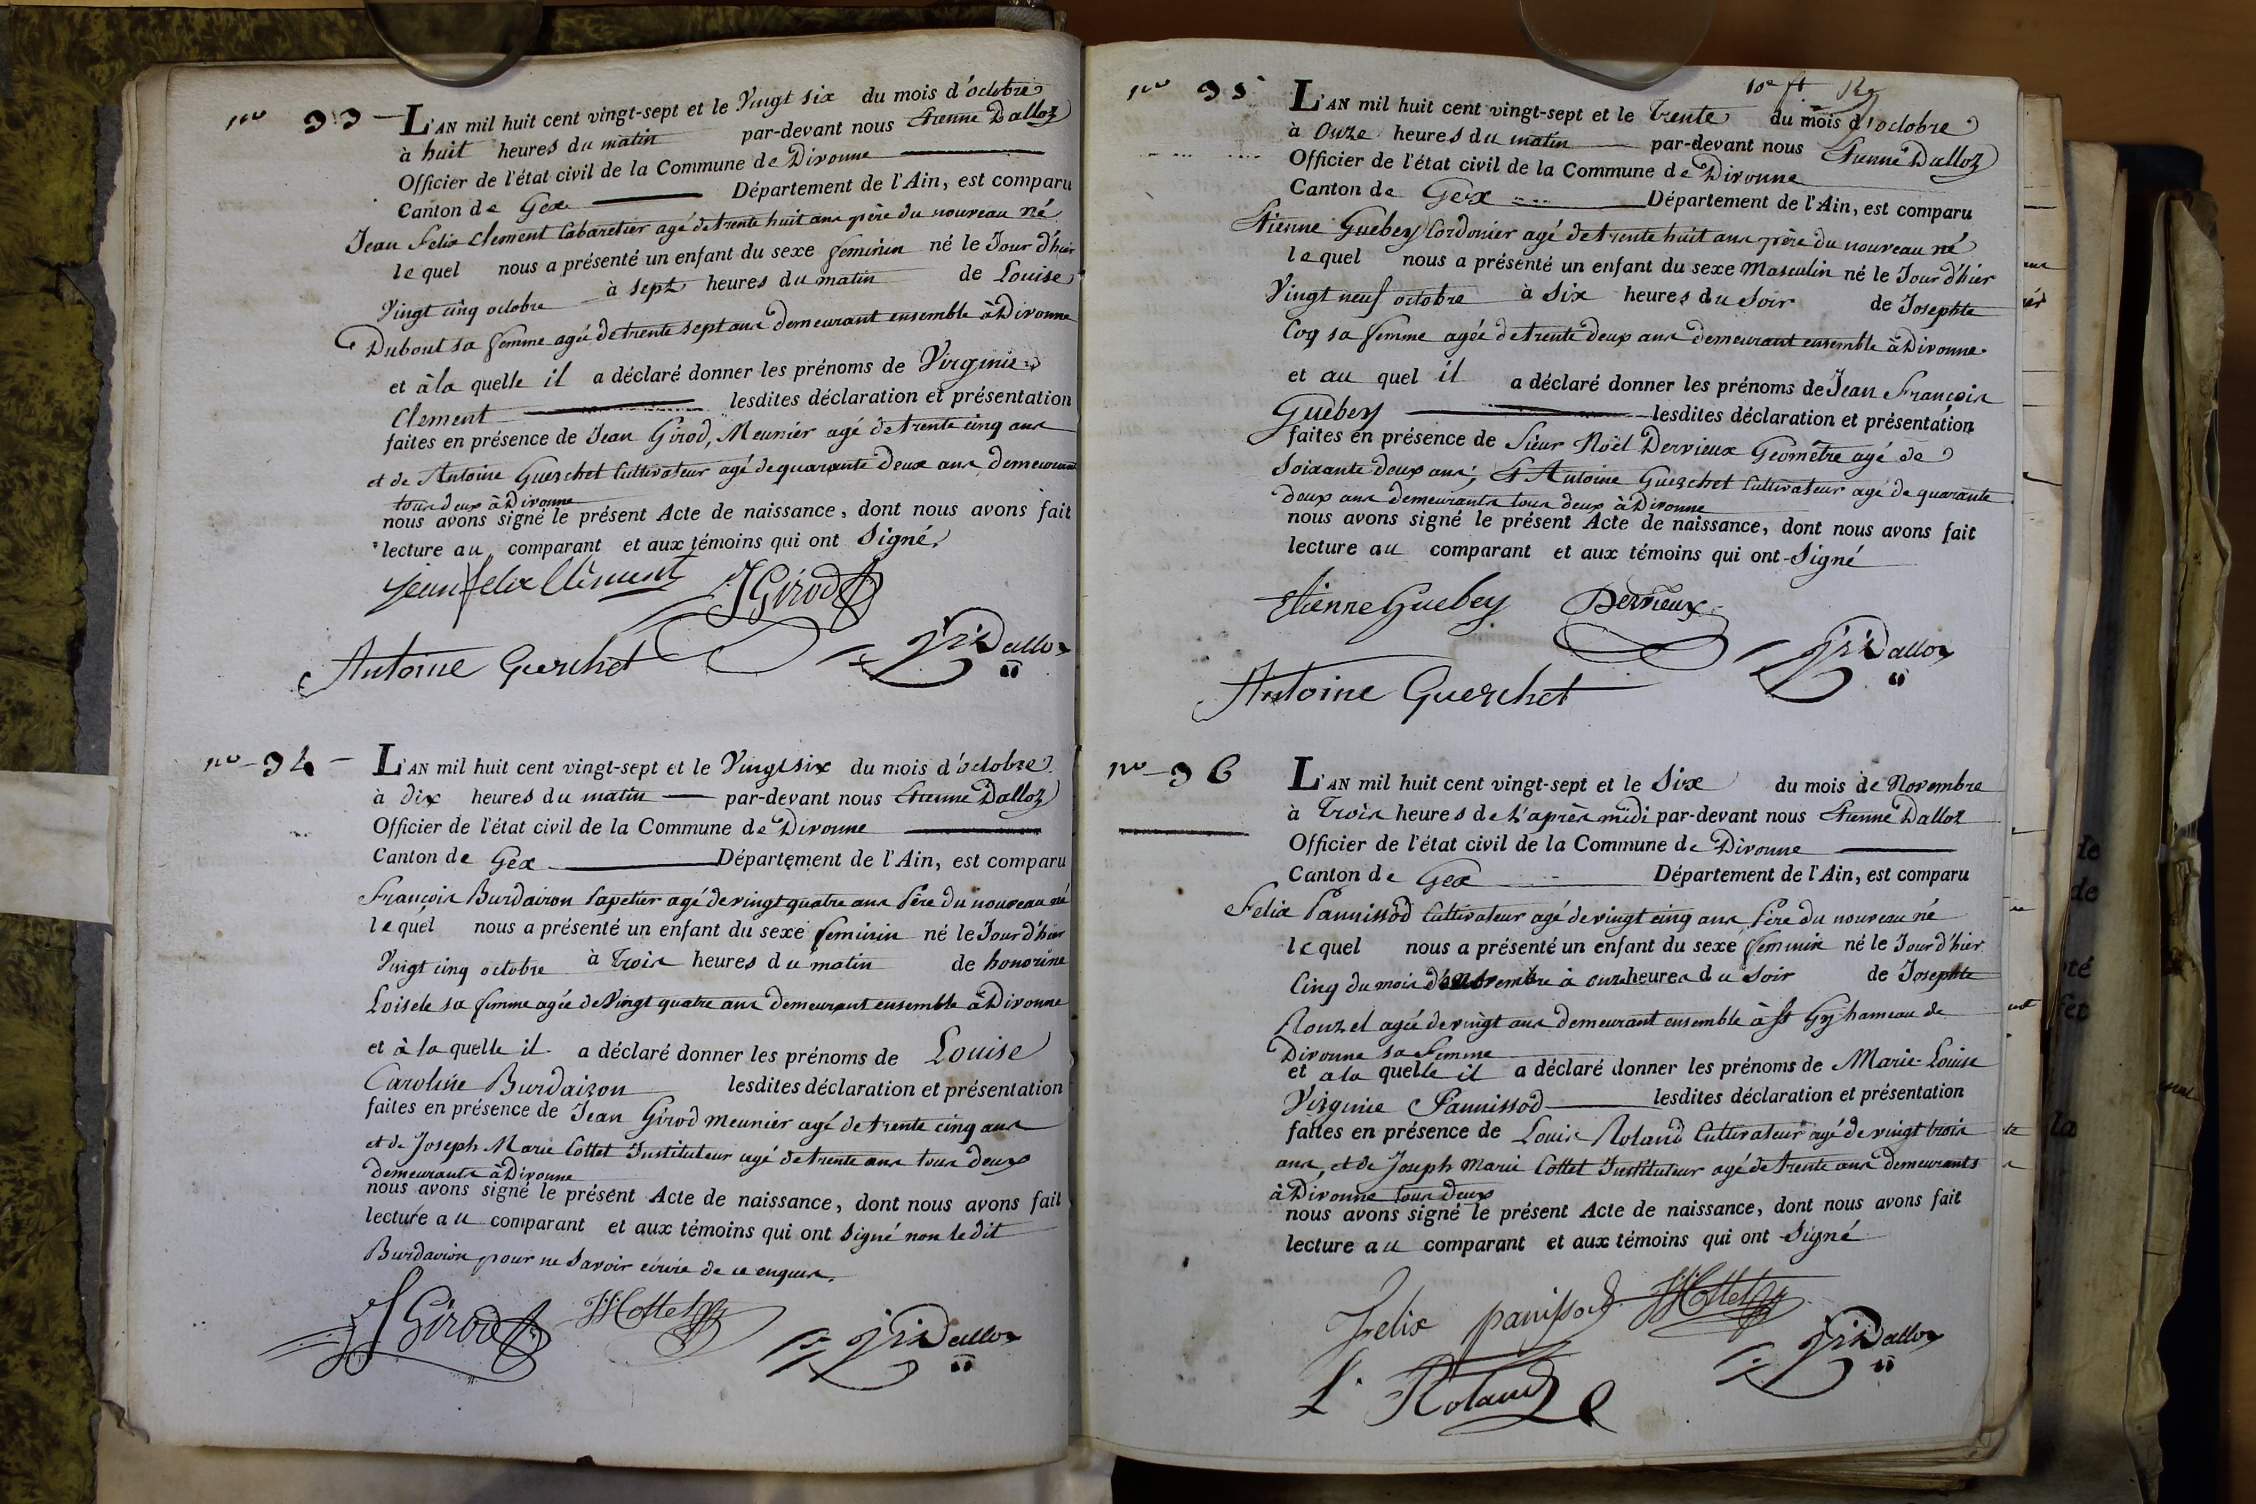 n.o 33
L'AN mil huit cent vingt-sept et le Vingt six du mois d'octobre
à huit heures du matin par-devant nous Etienne Dalloz
Officier de l'état civil de la Commune de Divonne
Canton de Gex Département de l'Ain, est comparu
Jean Felix Clement Cabaretier agé de trente huit ans père du nouveau né
le quel nous a présenté un enfant du sexe feminin né le Jour d'hier
Vingt cinq octobre à sept heures du matin de Louise
Dubout sa femme agée de trente sept ans demeurant ensemble à Divonne
et à la quelle il a déclaré donner les prénoms de Virginie
Clement lesdites déclaration et présentation
faites en présence de Jean Girod, Meunier agé de trente cinq ans
et de Antoine Guerchet Cultivateur agé de quarante Deux ans demeurant
tous deux à Divonne
nous avons signé le présent Acte de naissance, dont nous avons fait
lecture au comparant et aux témoins qui ont Signé.
jean felix Clement J Girod
Antoine Guerchet Dalloz
n.o 34
L'AN mil huit cent vingt-sept et le Vingt six du mois d'octobre
à dix heures du matin par-devant nous Etienne Dalloz
Officier de l'état civil de la Commune de Divonne
Canton de Gex Département de l'Ain, est comparu
François Burdairon Papetier agé de vingt quatre ans Père du nouveau né
le quel nous a présenté un enfant du sexe feminin né le Jour d'hier
Vingt cinq octobre à Trois heures du matin de honorine
Loisele sa femme agée de Vingt quatre ans demeurant ensemble à Divonne
et à la quelle il a déclaré donner les prénoms de Louise
Caroline Burdairon lesdites déclaration et présentation
faites en présence de Jean Girod meunier agé de trente cinq ans
et de Joseph Marie Cottet Instituteur agé de trente ans tous deux
demeurants à Divonne
nous avons signé le présent Acte de naissance, dont nous avons fait
lecture au comparant et aux témoins qui ont Signé non le dit
Burdairon pour ne Savoir écrire de ce enquis.
J Girod JM Cottet Dalloz
n.o 35
L'AN mil huit cent vingt-sept et le Trente du mois d'octobre
à Onze heures du matin par-devant nous Etienne Dalloz
Officier de l'état civil de la Commune de Divonne
Canton de Gex Département de l'Ain, est comparu
Etienne Guebey Cordonier agé de trente huit ans père du nouveau né
le quel nous a présenté un enfant du sexe Masculin né le Jour d'hier
Vingt neuf octobre à Six heures du Soir de Josephte
Coq sa femme agée de trente deux ans demeurant ensemble à Divonne
et au quel il a déclaré donner les prénoms de Jean François
Guebey lesdites déclaration et présentation
faites en présence de Sieur Noël Dervieux Géomètre agé de
Soixante deux ans, et Antoine Guerchet Cultivateur agé de quarante
deux ans demeurants tous deux à Divonne
nous avons signé le présent Acte de naissance, dont nous avons fait
lecture au comparant et aux témoins qui ont Signé
Etienne Guebey Dervieux
Dalloz
Antoine Guerchet
n.o 36
L'AN mil huit cent vingt-sept et le Six du mois de Novembre
à Trois heures de L'après midi par-devant nous Etienne Dalloz
Officier de l'état civil de la Commune de Divonne
Canton de Gex Département de l'Ain, est comparu
Felix Pannissod Cultivateur agé de vingt cinq ans Père du nouveau né
le quel nous a présenté un enfant du sexe feminin né le Jour d'hier
Cinq du mois de novembre à onze heures du Soir de Josephte
Rouzet agée de vingt ans demeurant ensemble à St Gy hameau de
Divonne sa Femme
et a la quelle il a déclaré donner les prénoms de Marie-Louise
Virginie Pannissod lesdites déclaration et présentation
faites en présence de Louis Roland Cultivateur agé de vingt trois
ans, et de Joseph Marie Cottet Instituteur agé de trente ans demeurants
à Divonne tous deux
nous avons signé le présent Acte de naissance, dont nous avons fait
lecture au comparant et aux témoins qui ont Signé
Felix panissod JM Cottet
Dalloz
L. Roland